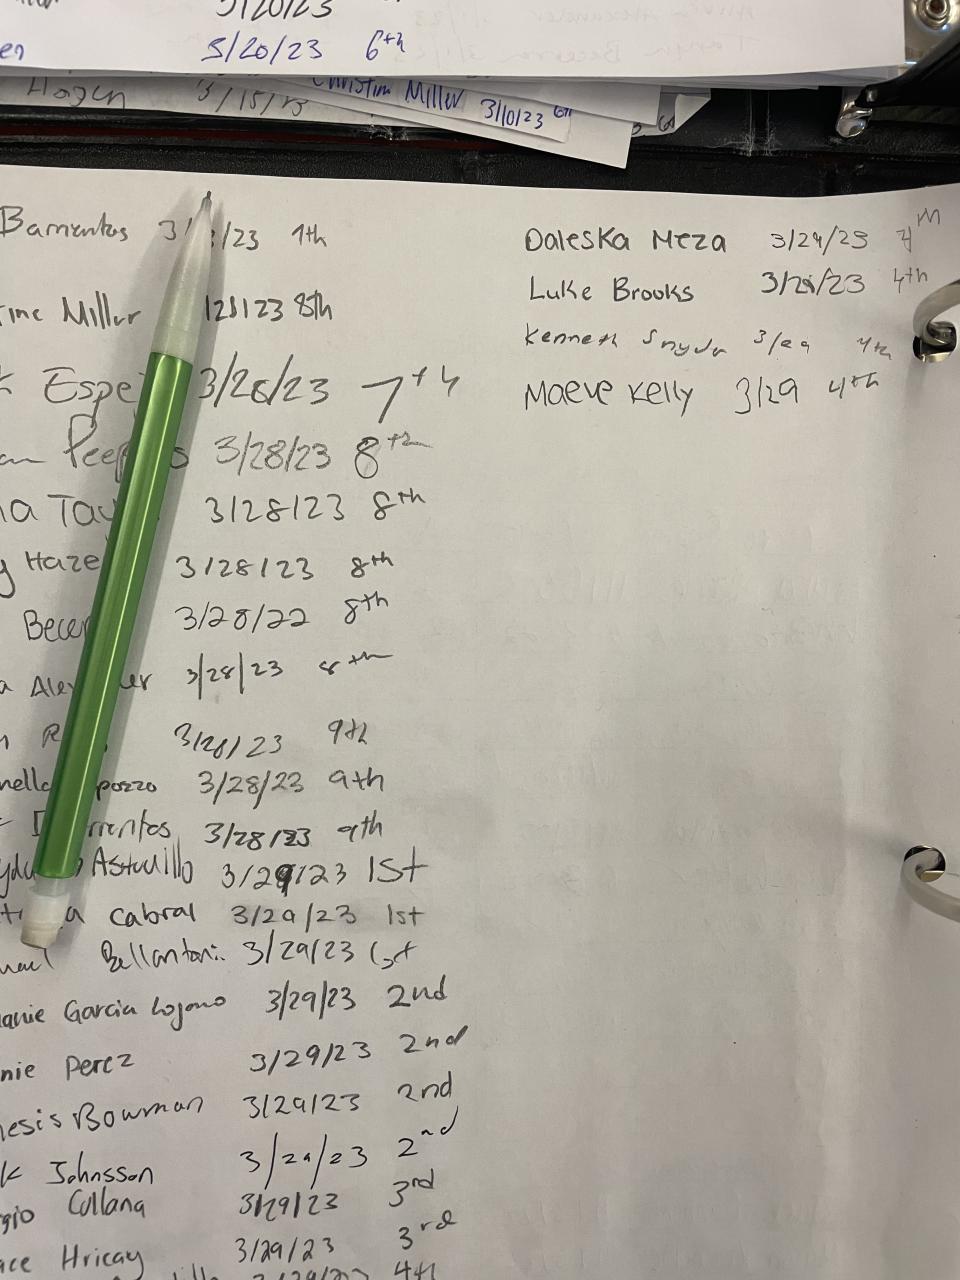 3/20/23
en 3/20/23 6th
Hogen 3/15/23
Christine Miller 3/10/23 6th
Barrientos 3/ /23 9th
ine Miller /28/23 8th
k Espe 3/28/23 7th
an Peep s 3/28/23 8th
na Tay 3/28/23 8th
y Haze 3/28/23 8th
Becer 3/28/22 8th
a Alex er 3/28/23 8th
n R 3/28/23 9th
nella pozzo 3/28/23 9th
rrientos 3/28/23 9th
Astudillo 3/29/23 1st
a Cabral 3/29/23 1st
Bellantoni 3/29/23 1st
anie Garcia Lozano 3/29/23 2nd
nie Perez 3/29/23 2nd
nesis Bowman 3/29/23 2nd
k Johnsson 3/29/23 2nd
gio Collana 3/29/23 3rd
ace Hricay 3/29/23 3rd
3/29/23 4th
Daleska Meza 3/29/23 4th
Luke Brooks 3/29/23 4th
Kenneth Snyder 3/29 4th
Maeve Kelly 3/29 4th